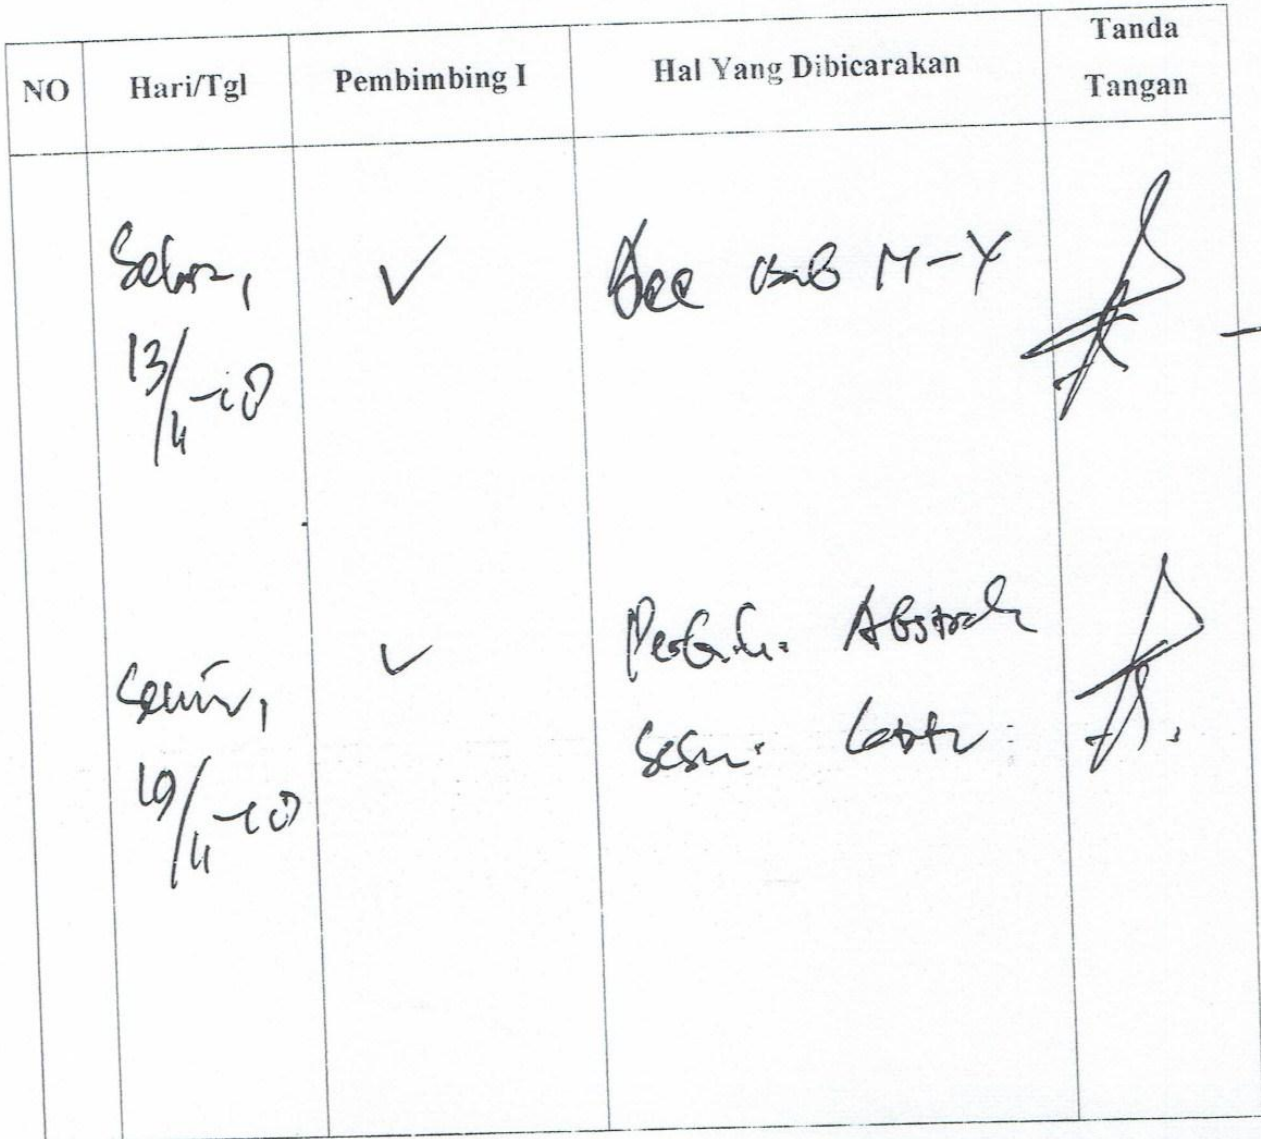 NO Hari/Tgl Pembimbing I Hal Yang Dibicarakan Tanda Tangan
Selasa,
13/4-10
Acc bab
Senin,
19/4-10
Perbaiki Abstrak
sesuai